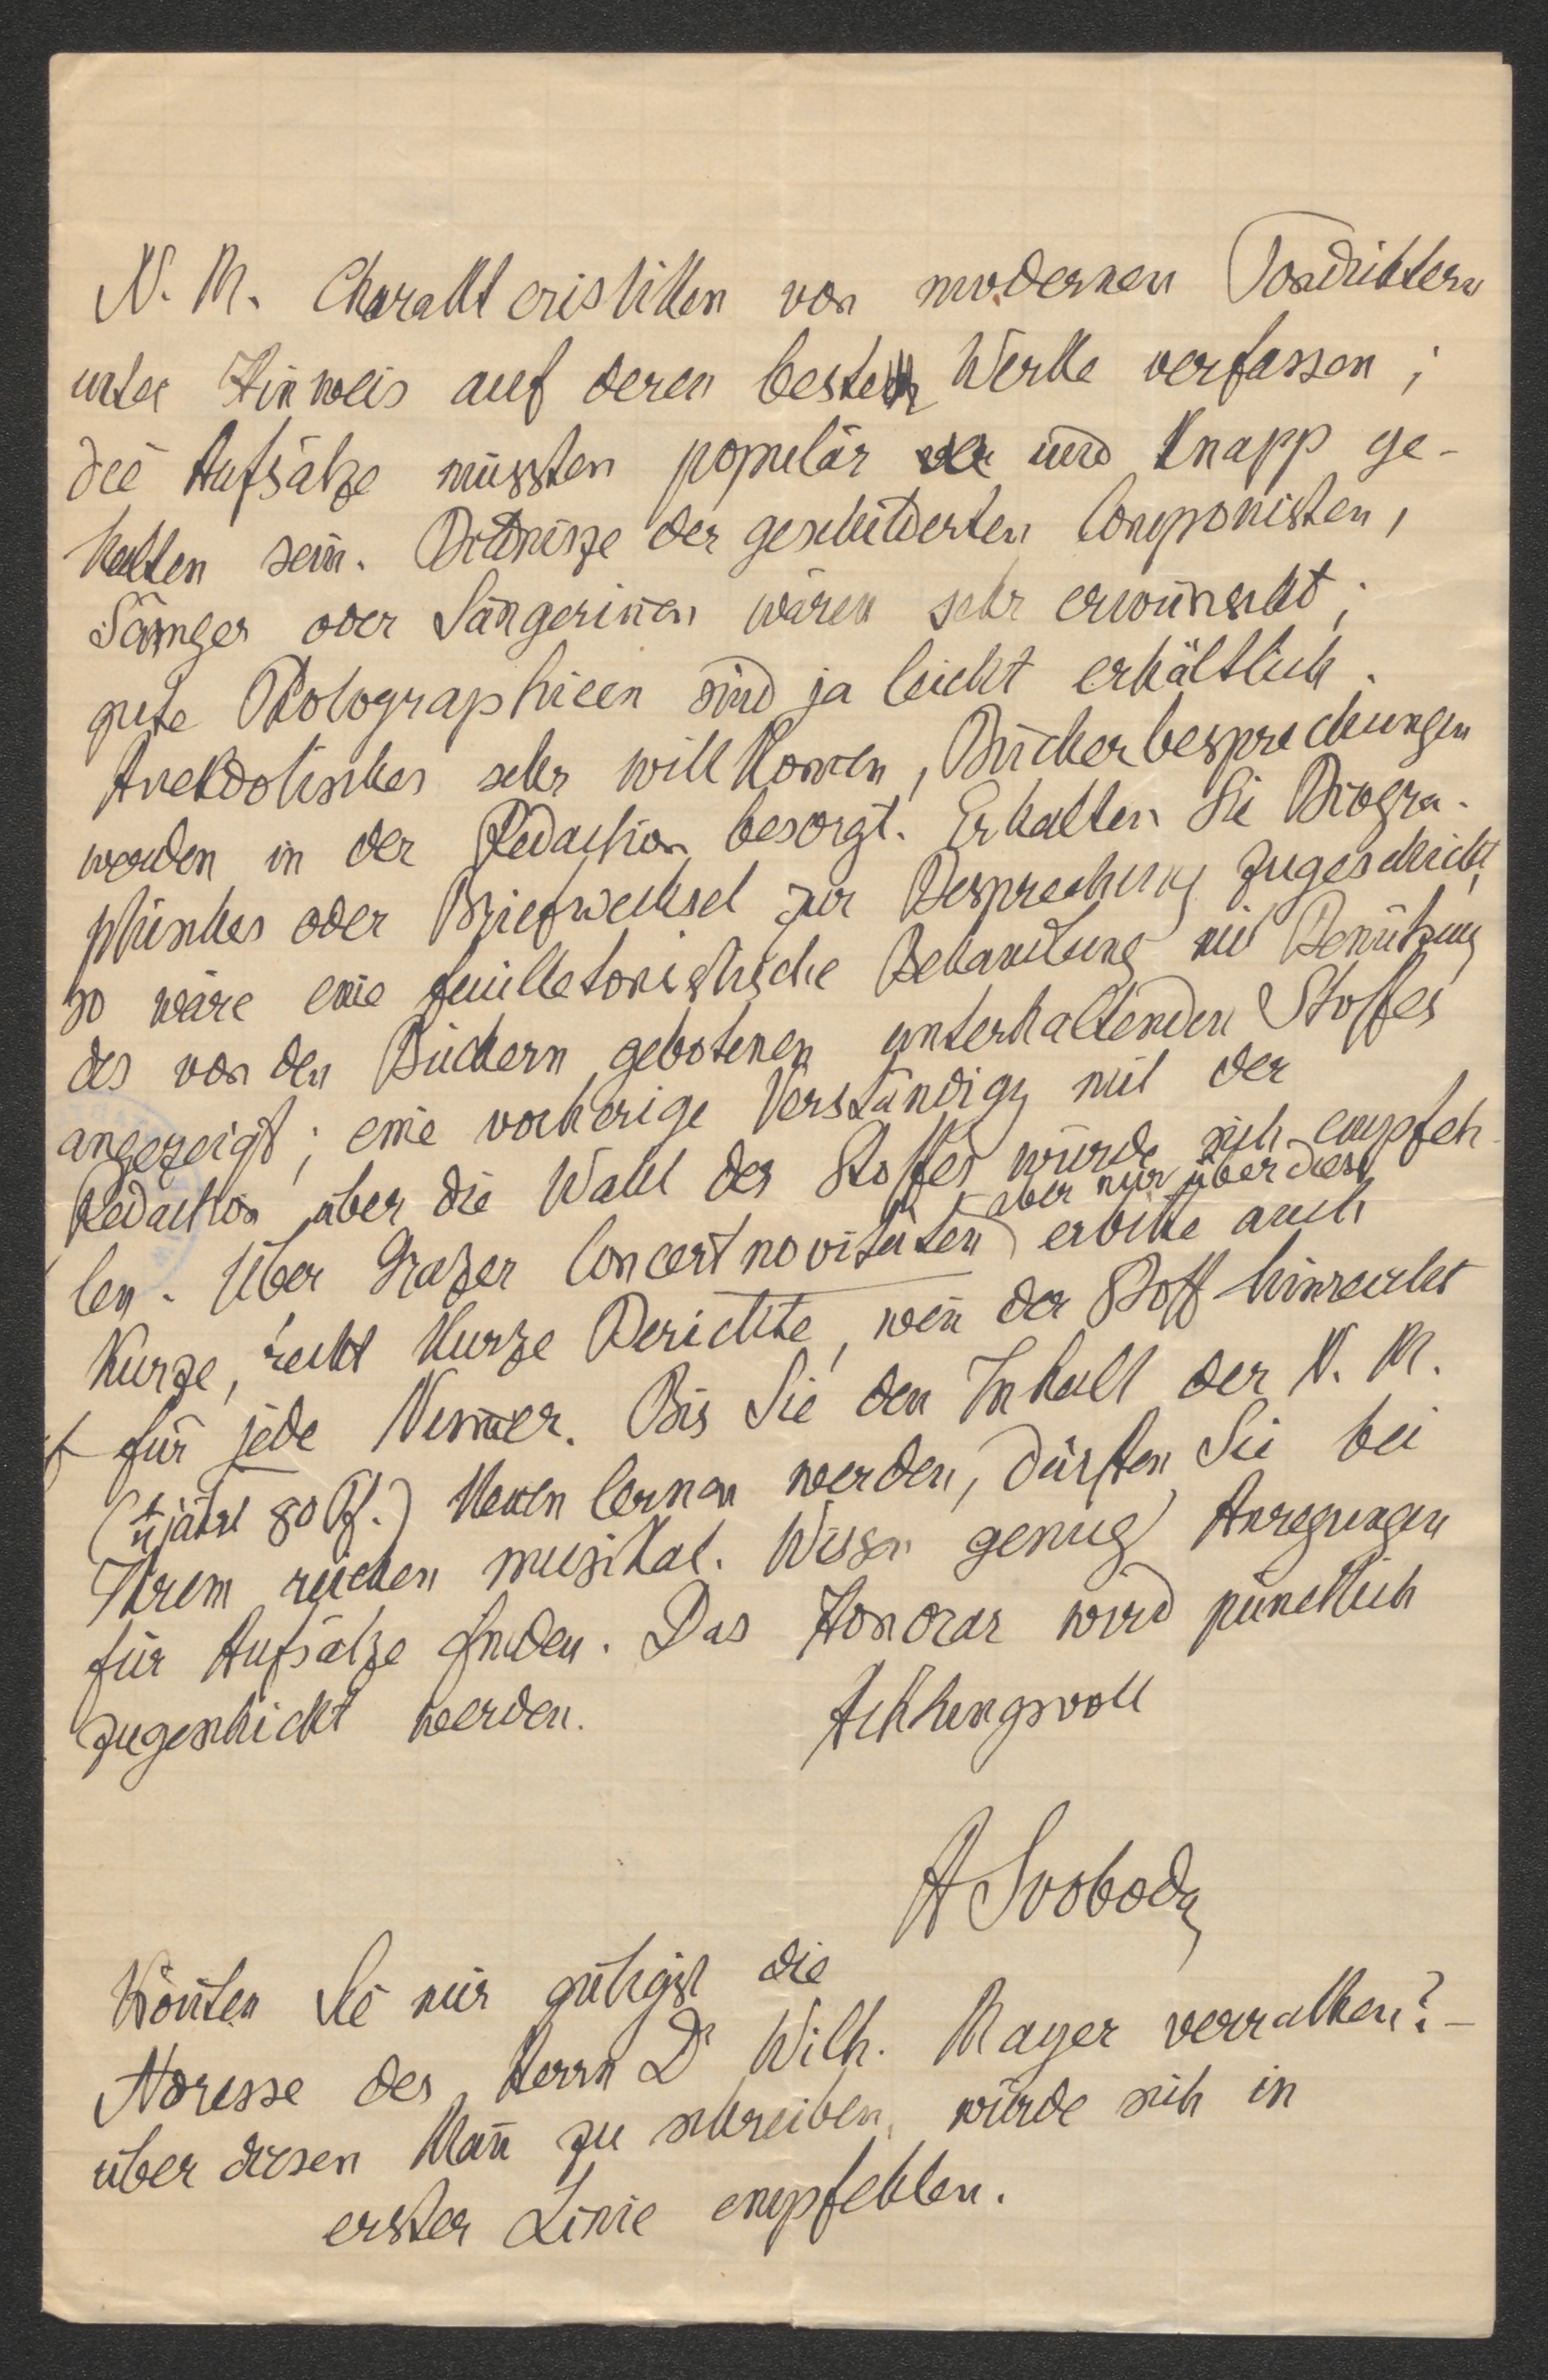 N. M. Charakteristiken von modernen Tondichtern
unter Hinweis auf deren beste Werke verfassen;
die Aufsätze müssten populär und knapp ge-
halten sein. Bildnisse der geschilderten Componisten,
Sänger oder Sängerin̄en wären sehr erwünscht;
gute Photographieen sind ja leicht erhältlich.
Anekdotisches sehr willkom̄en, Bücherbesprechungen
werden in der Redaction besorgt. Erhalten Sie Biogra-
phisches oder Briefwechsel zur Besprechung zugeschickt,
so wäre eine feuilletonistische Behandlung mit Benützung
des von den Büchern gebotenen unterhaltenden Stoffes
angezeigt; eine vorherige Verständigg mit der
Redaction über die Wahl des Stoffes würde sich empfeh-
len. Über Grazer Concertnovitäten (aber nur über diese)
erbitte auch
kurze, recht kurze Berichte, wen̄ der Stoff hinreicht
für jede Num̄er. Bis Sie den Inhalt der N. M.
(¼jährl 80 Pf.) ken̄en lernen werden, dürften Sie bei
Ihrem reichen musikal. Wissen genug Anregungen
für Aufsätze finden. Das Honorar wird pünctlich
zugeschickt werden. Achtungsvoll
A Svoboda
Kön̄ten Sie mir gütigst die
Adresse des Herrn Dr Wilh. Mayer verrathen? –
über diesen Man̄ zu schreiben, würde sich in
erster Linie empfehlen.